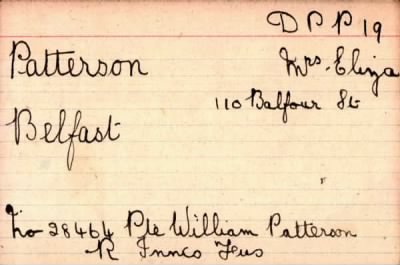 D P P 19
Patterson Mrs. Eliza
110 Balfour St
Belfast
No 28464 Pte William Patterson
R Innco Fus